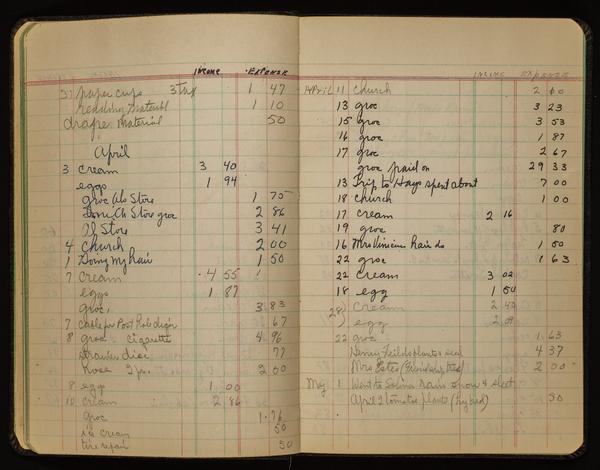 INCOME EXPENSE
31 paper cups 1 47
reading material 1 10
drape material 50
April
3 cream 3 40
eggs 1 94
groc Al's Store 1 75
Store groc 2 86
Al Store 3 41
4 Church 2 00
1 Doing my hair 1 50
7 cream 4 55
eggs 1 87
groc, 3 83
7 cable for Post Hole digr 67
8 groc cigarette 4 96
disc 77
Hose 2 pr. 2 00
8 eggs 1 00
10 cream 2 86
groc 1.76
ice cream 50
tire repair 50
INCOME EXPENSE
April 11 Church 2 00
13 groc 3 23
15 groc 3 53
16 groc 1 87
17 groc 2 67
groc paid on 29 33
13 Trip to Hays spent about 7 00
18 church 1 00
17 cream 2 16
19 groc 80
16 Mrs hair do 1 50
22 groc 1 63
22 cream 3 02
18 egg 1 50
28 cream 2 40
egg 2
22 groc 1.63
Henry Fields plants & seed 4 37
Mrs Estes 2 00
May 1 Went to Salina Rain snow & sleet
April 2 tomatoe plants (hybred) 50